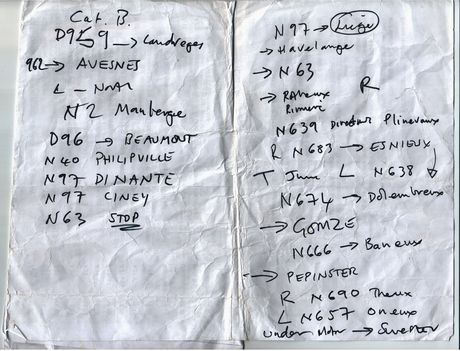 Cat. B.
D959 → Landreçes
962 → AVESNES
L - Noal
N2 Mauberge
D96 → BEAUMONT
N40 PHILIPVILLE
N97 DINANTE
N97 CINEY
N63 STOP
N97 → Liège
→ Havelange
→ N63
→ R
N639 Plinevaux
R N683 → ESNIEUX
T June L N638
N674 → Dolembreux
→ GOMZE
N666 → Baneux
→ PEPINSTER
R N690 Theux
L N657 Oneux
under →